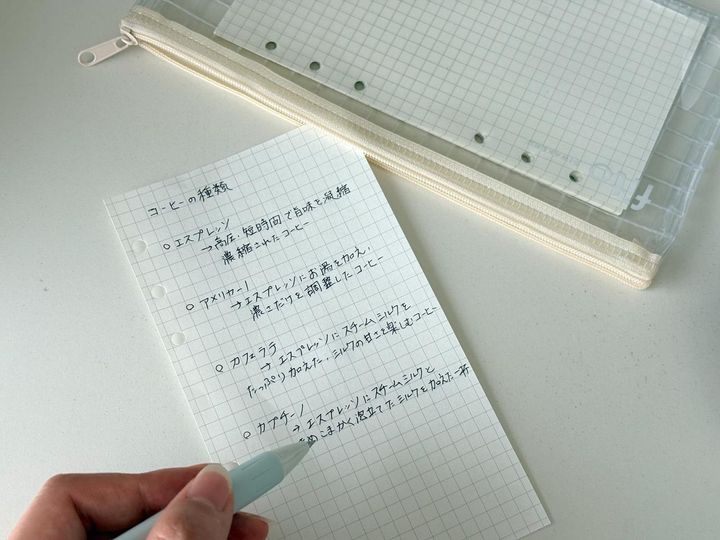 コーヒーの種類
○ エスプレッソ
→ 高圧、短時間で旨味を凝縮
濃縮されたコーヒー
○ アメリカーノ
→ エスプレッソにお湯を加え、
濃さだけを調整したコーヒー
○ カフェラテ
→ エスプレッソにスチームミルクを
たっぷり加えた、ミルクの甘さを楽しむコーヒー
○ カプチーノ
→ エスプレッソにスチームミルクと
きめこまかく泡立てたミルクを加えた一杯